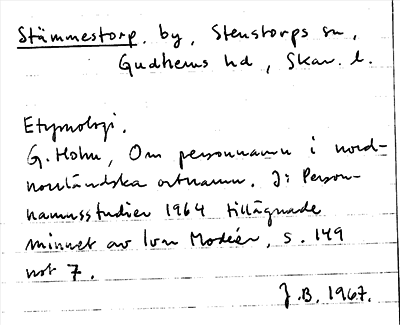 Stämmestorp. by, Stenstorps sn,
Gudhems hd, Skar. l.
Etymologi.
G. Holm, Om personnamn i nord-
norrländska ortnamn. I: Person-
namnsstudier 1964 tillägnade
minnet av Ivar Modéer, s. 149
not 7.
J.B. 1967.